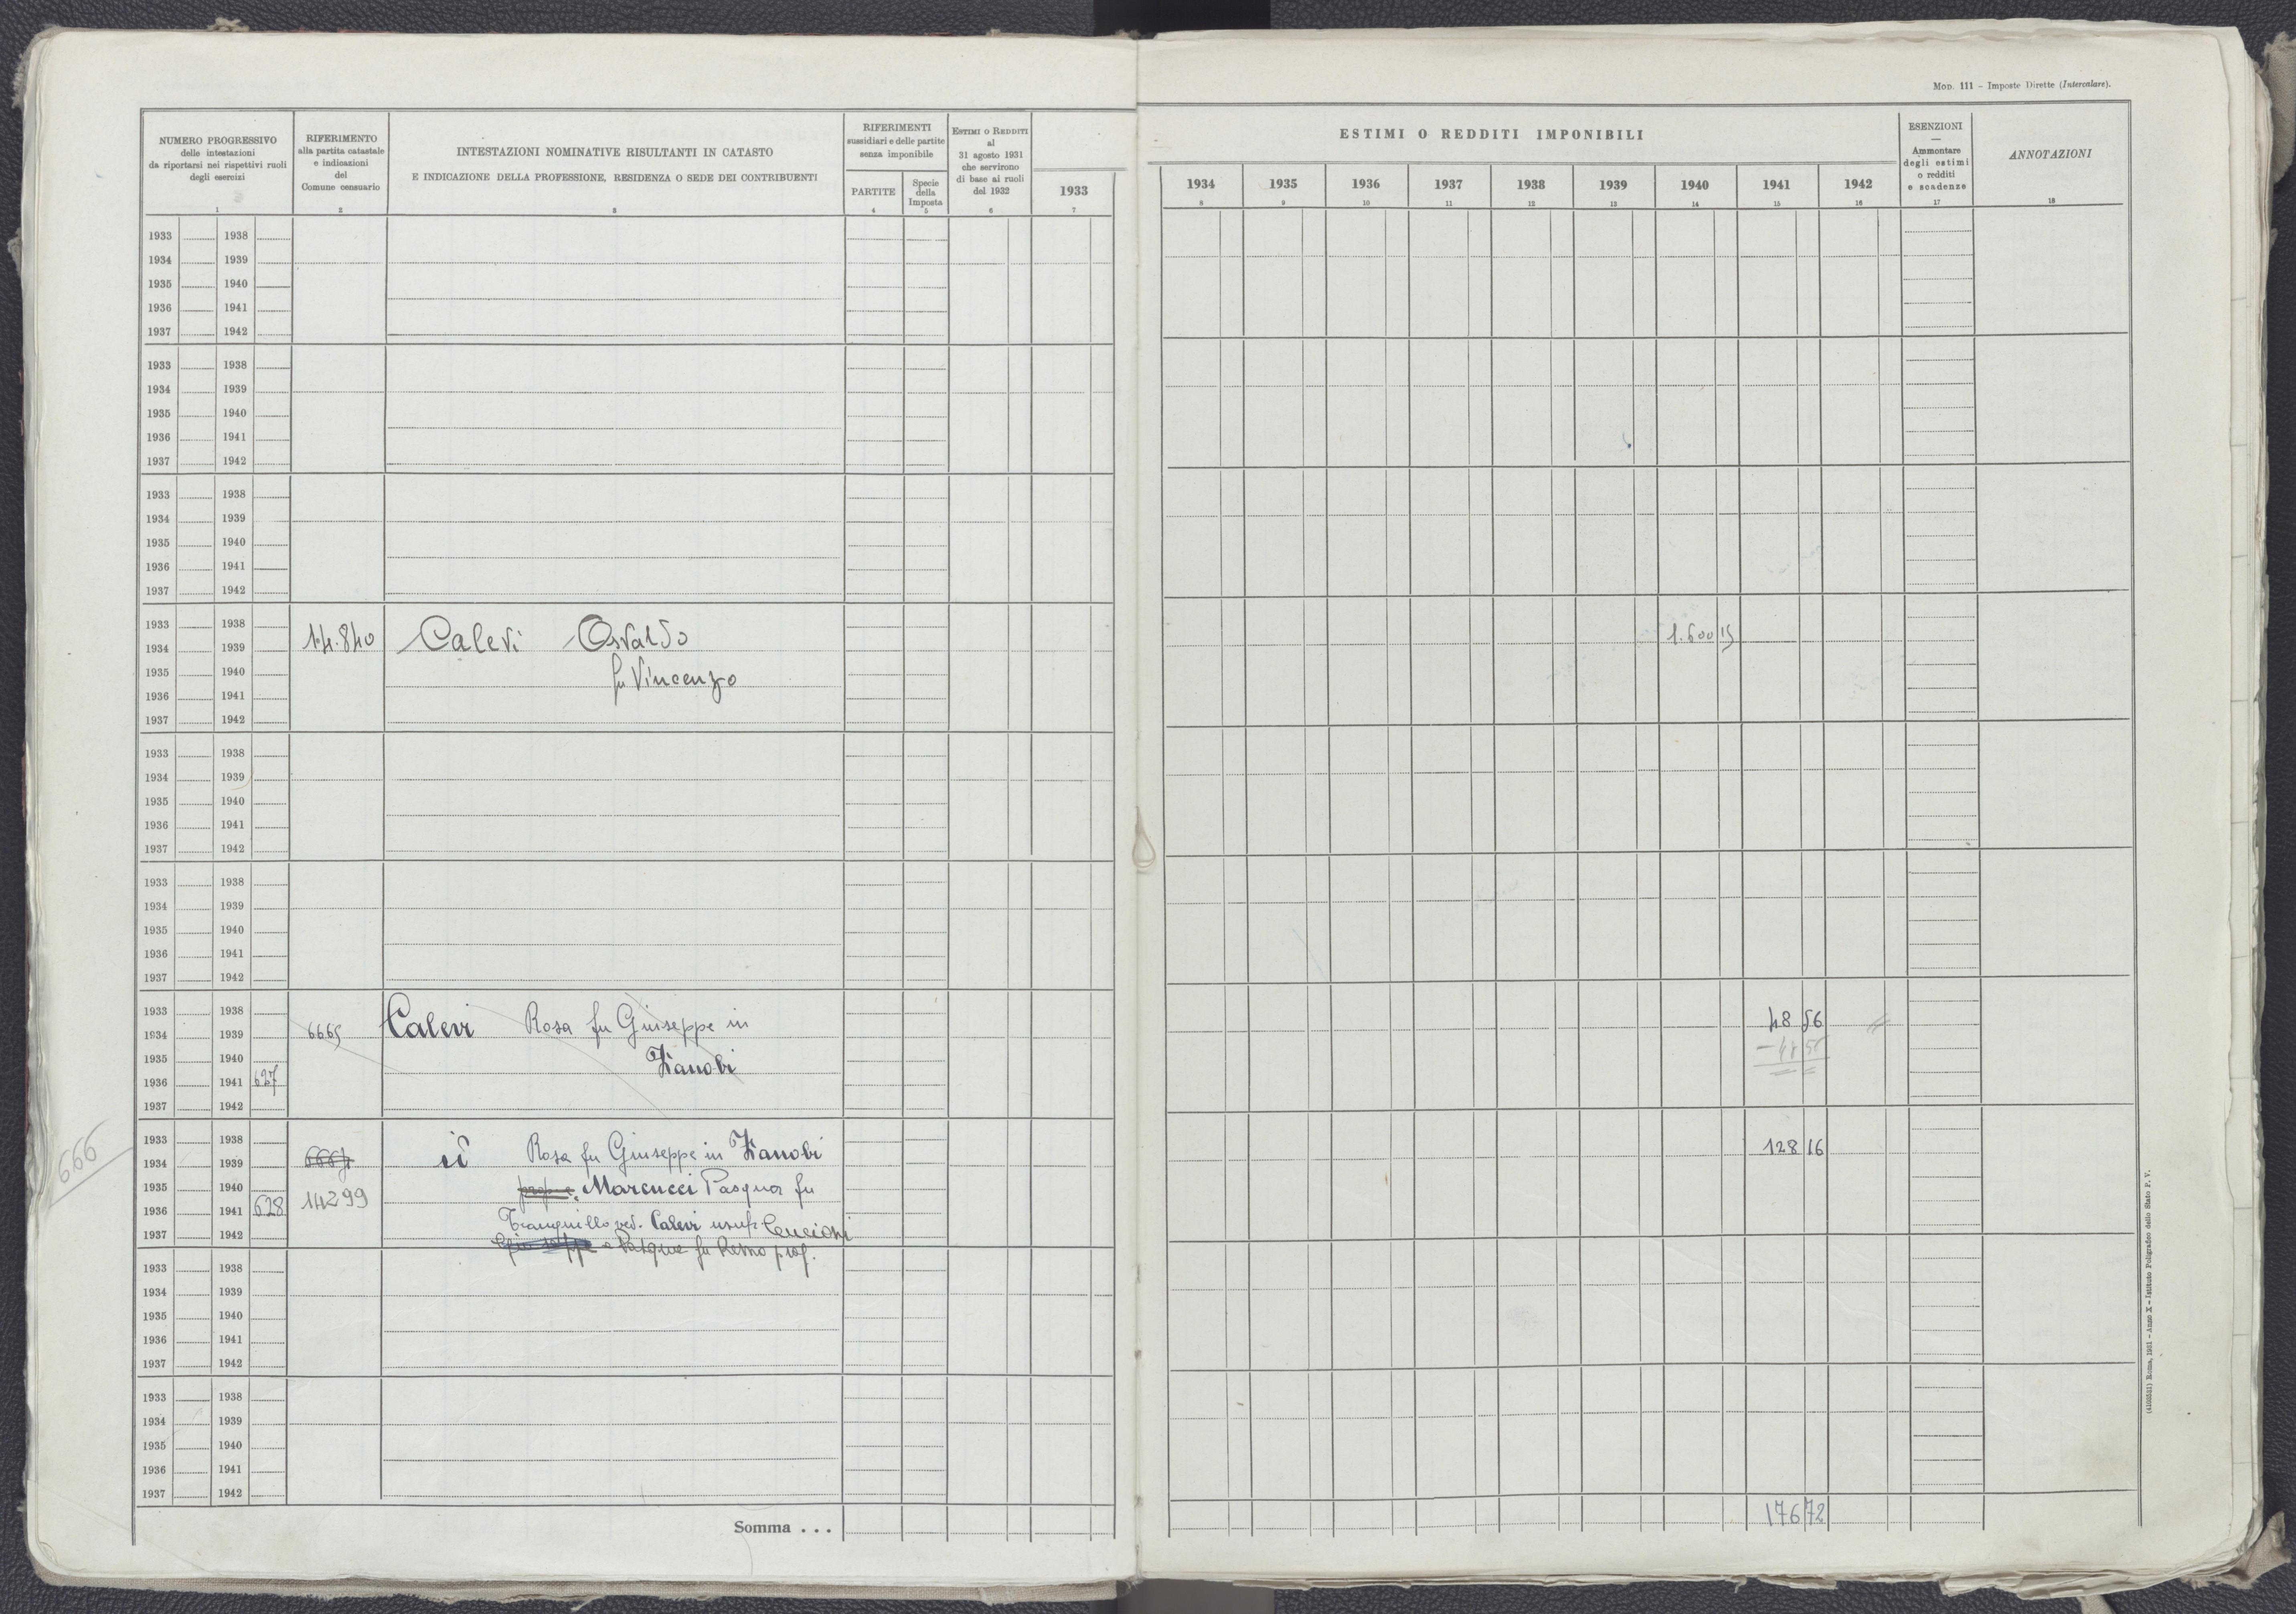 Mod. 111 - Imposte Dirette (Intercalare).
NUMERO PROGRESSIVO
delle intestazioni
da riportarsi nei rispettivi ruoli
degli esercizi
1
RIFERIMENTO
alla partita catastale
e indicazioni
del
Comune censuario
2
INTESTAZIONI NOMINATIVE RISULTANTI IN CATASTO
E INDICAZIONE DELLA PROFESSIONE, RESIDENZA O SEDE DEI CONTRIBUENTI
3
RIFERIMENTI
sussidiari e delle partite
senza imponibile
PARTITE
4
Specie
della
Imposta
5
Estimi o Redditi
al
31 agosto 1931
che servirono
di base ai ruoli
del 1932
6
1933
7
ESTIMI O REDDITI IMPONIBILI
1934 1935 1936 1937 1938 1939 1940 1941 1942
8 9 10 11 12 13 14 15 16
ESENZIONI
—
Ammontare
degli estimi
o redditi
e scadenze
17
ANNOTAZIONI
18
1933 1938
1934 1939
1935 1940
1936 1941
1937 1942
1933 1938
1934 1939
1935 1940
1936 1941
1937 1942
1933 1938
1934 1939
1935 1940
1936 1941
1937 1942
1933 1938
1934 1939 14.840 Calevi Osvaldo 1.600 15
1935 1940 fu Vincenzo
1936 1941
1937 1942
1933 1938
1934 1939
1935 1940
1936 1941
1937 1942
1933 1938
1934 1939
1935 1940
1936 1941
1937 1942
1933 1938
1934 1939 6665 Calevi Rosa fu Giuseppe in 48 56
1935 1940 Zanobi - 48 56
1936 1941 627
1937 1942
1933 1938
1934 1939 6667 id Rosa fu Giuseppe in Zanobi 128 16
1935 1940 Marcucci Pasqua fu
1936 1941 628 14299
1937 1942 Tranquillo ved. Calevi usuf. Cencioni
Giuseppe e Pasqua fu Remo prof.
666
1933 1938
1934 1939
1935 1940
1936 1941
1937 1942
1933 1938
1934 1939
1935 1940
1936 1941
1937 1942
Somma . . . 176 72
(4103551) Roma, 1931 - Anno X - Istituto Poligrafico dello Stato P. V.